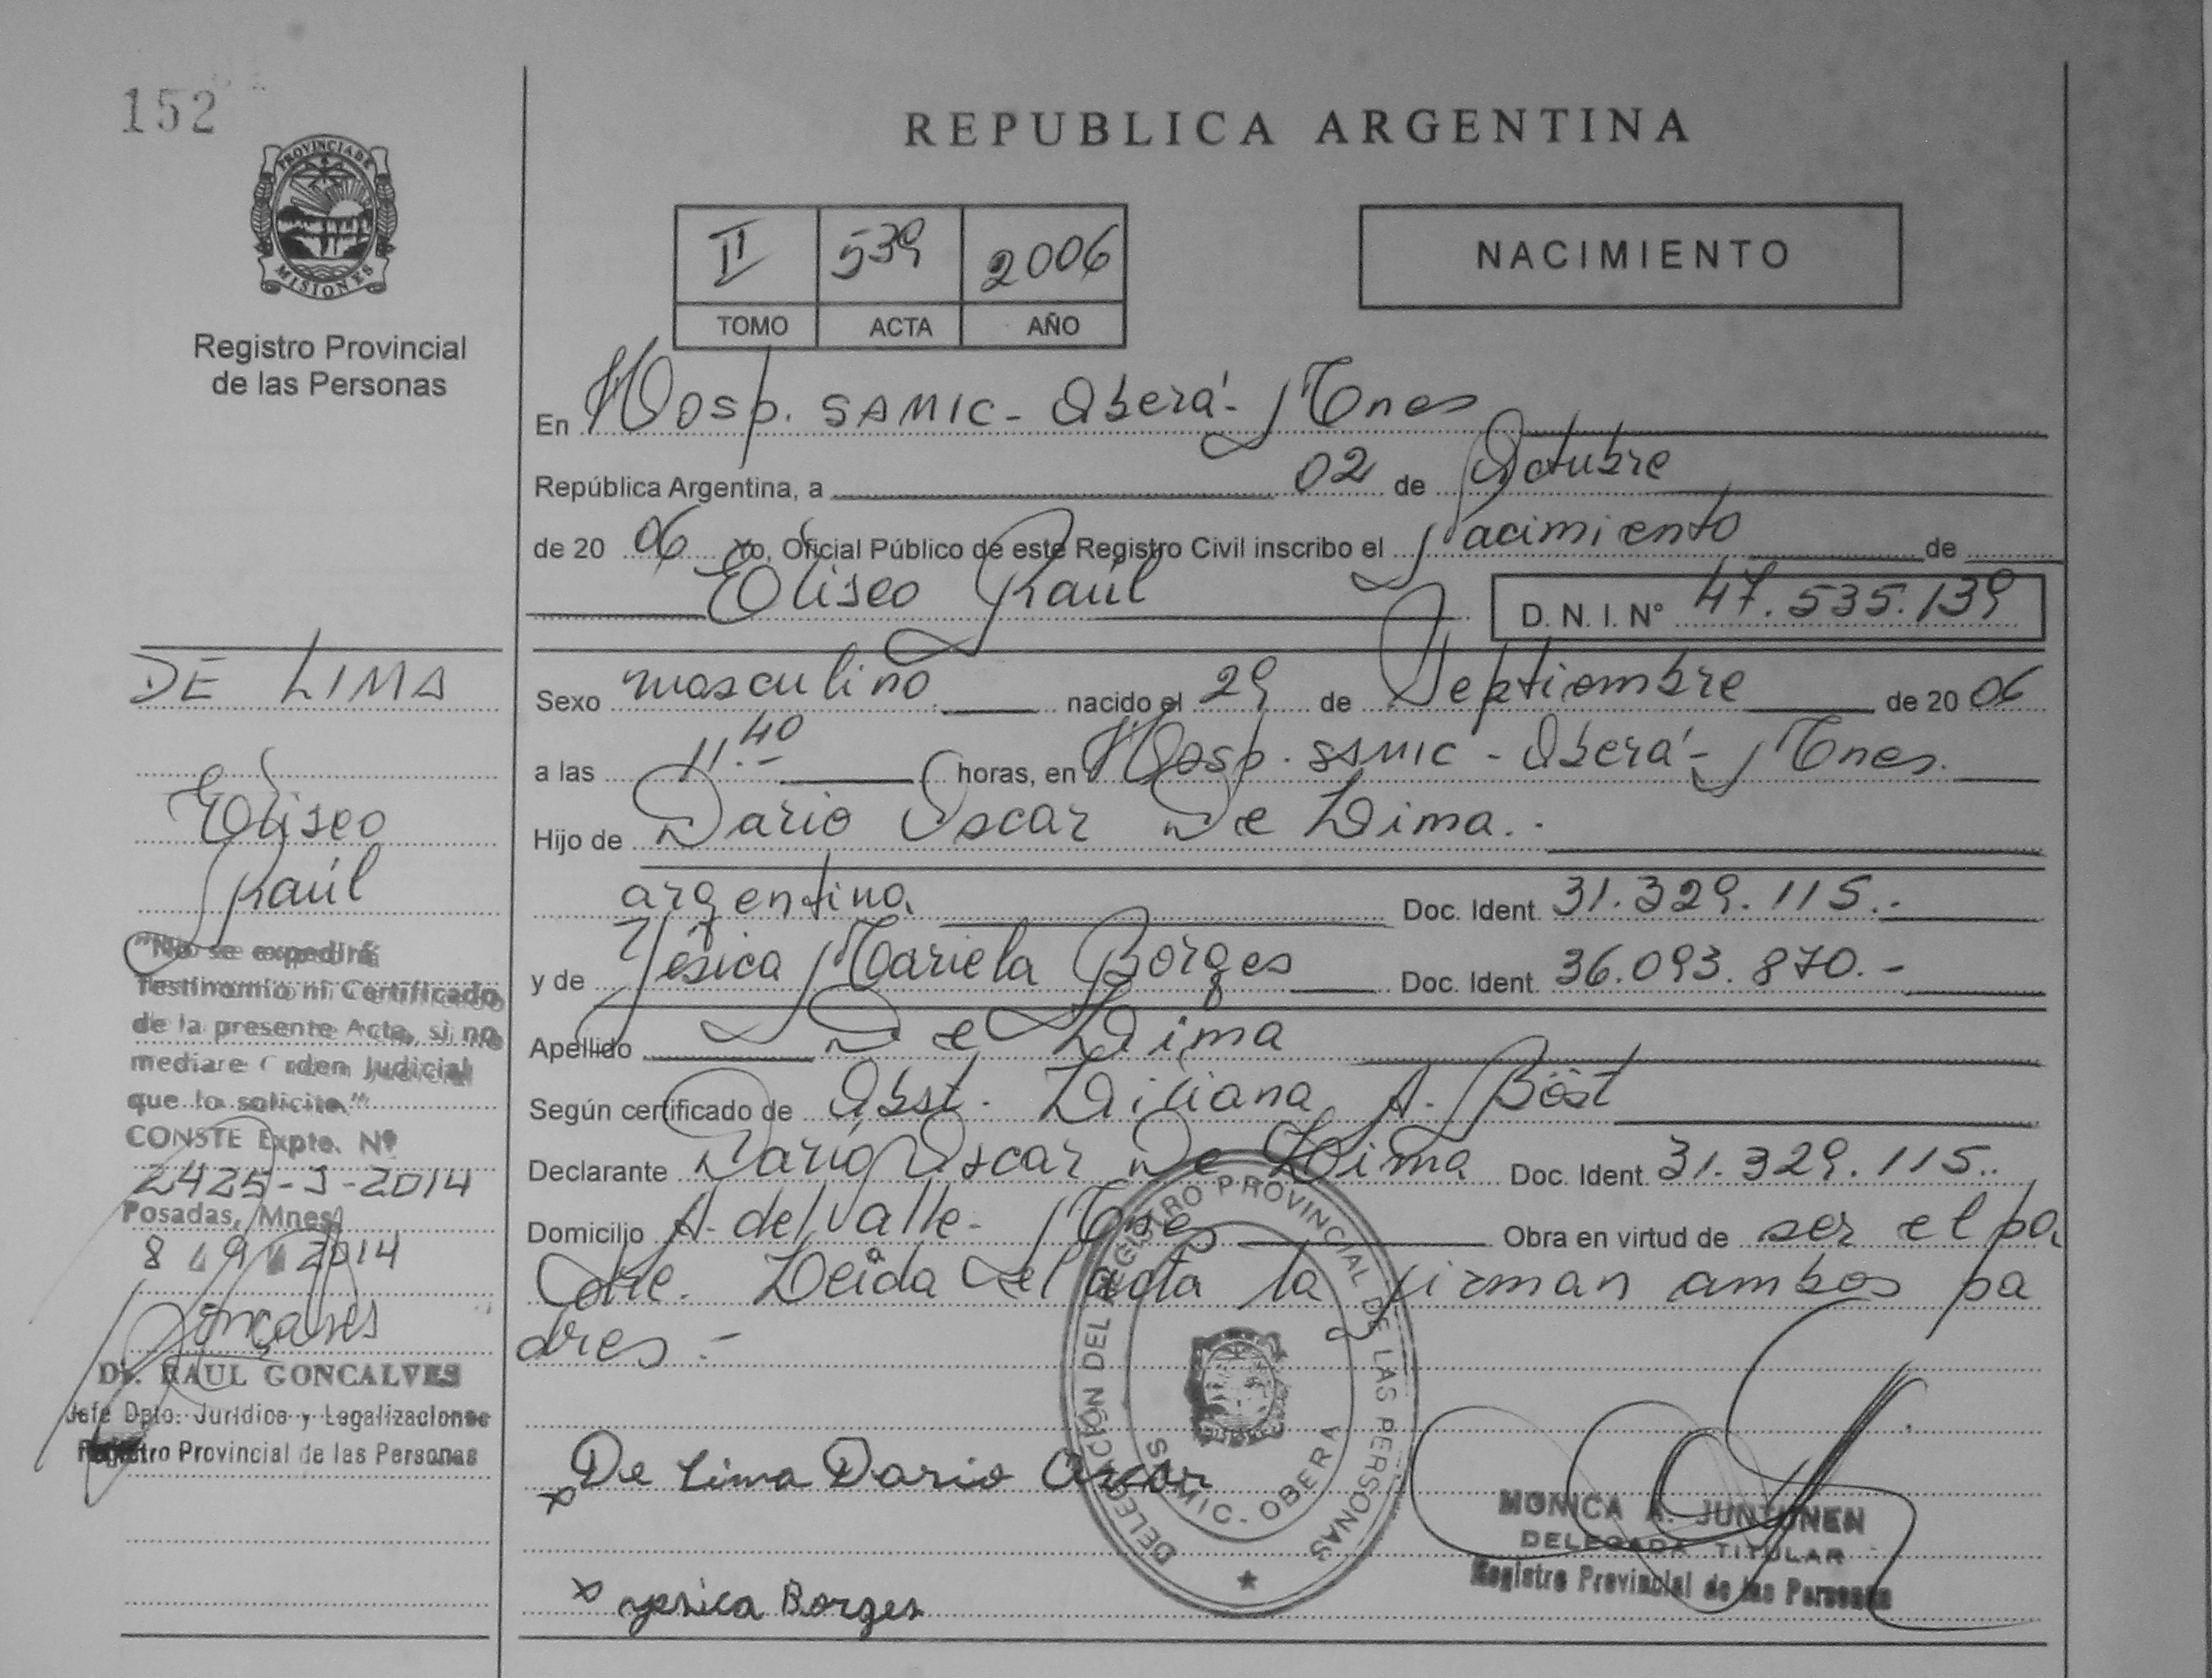 152
PROVINCIA DE
MISIONES
Registro Provincial
de las Personas
REPUBLICA ARGENTINA
II 539 2006
TOMO ACTA AÑO
NACIMIENTO
En Hosp. SAMIC - Oberá - Mnes
República Argentina, a 02 de Octubre
de 20 06 Yo, Oficial Público de este Registro Civil inscribo el Nacimiento de
Eliseo Raúl D. N. I. N° 47.535.139
Sexo masculino nacido el 29 de Septiembre de 20 06
a las 11.40 horas, en Hosp. SAMIC - Oberá - Mnes.
Hijo de Dario Oscar De Lima.-
argentino Doc. Ident. 31.329.115.-
y de Yésica Mariela Borges Doc. Ident. 36.093.870.-
Apellido De Lima
Según certificado de Obst. Liliana A. Böst
Declarante Dario Oscar De Lima Doc. Ident. 31.329.115.-
Domicilio A. del Valle - Mnes Obra en virtud de ser el pa
dre. Leída el acta la firman ambos pa
dres.-
De Lima Dario Oscar
Yesica Borges
DELEGACIÓN DEL REGISTRO PROVINCIAL DE LAS PERSONAS
SAMIC - OBERA
MONICA A. JUNTUNEN
DELEGADA TITULAR
Registro Provincial de las Personas
DE LIMA
Eliseo
Raúl
"No se expedirá
Testimonio ni Certificado
de la presente Acta, si no
mediare Orden Judicial
que lo solicite"
CONSTE Expte. Nº
2425-J-2014
Posadas, Mnes
8 9 2014
Gonçalves
Dr. RAUL GONCALVES
Jefe Dpto. Jurídico y Legalizaciones
Registro Provincial de las Personas